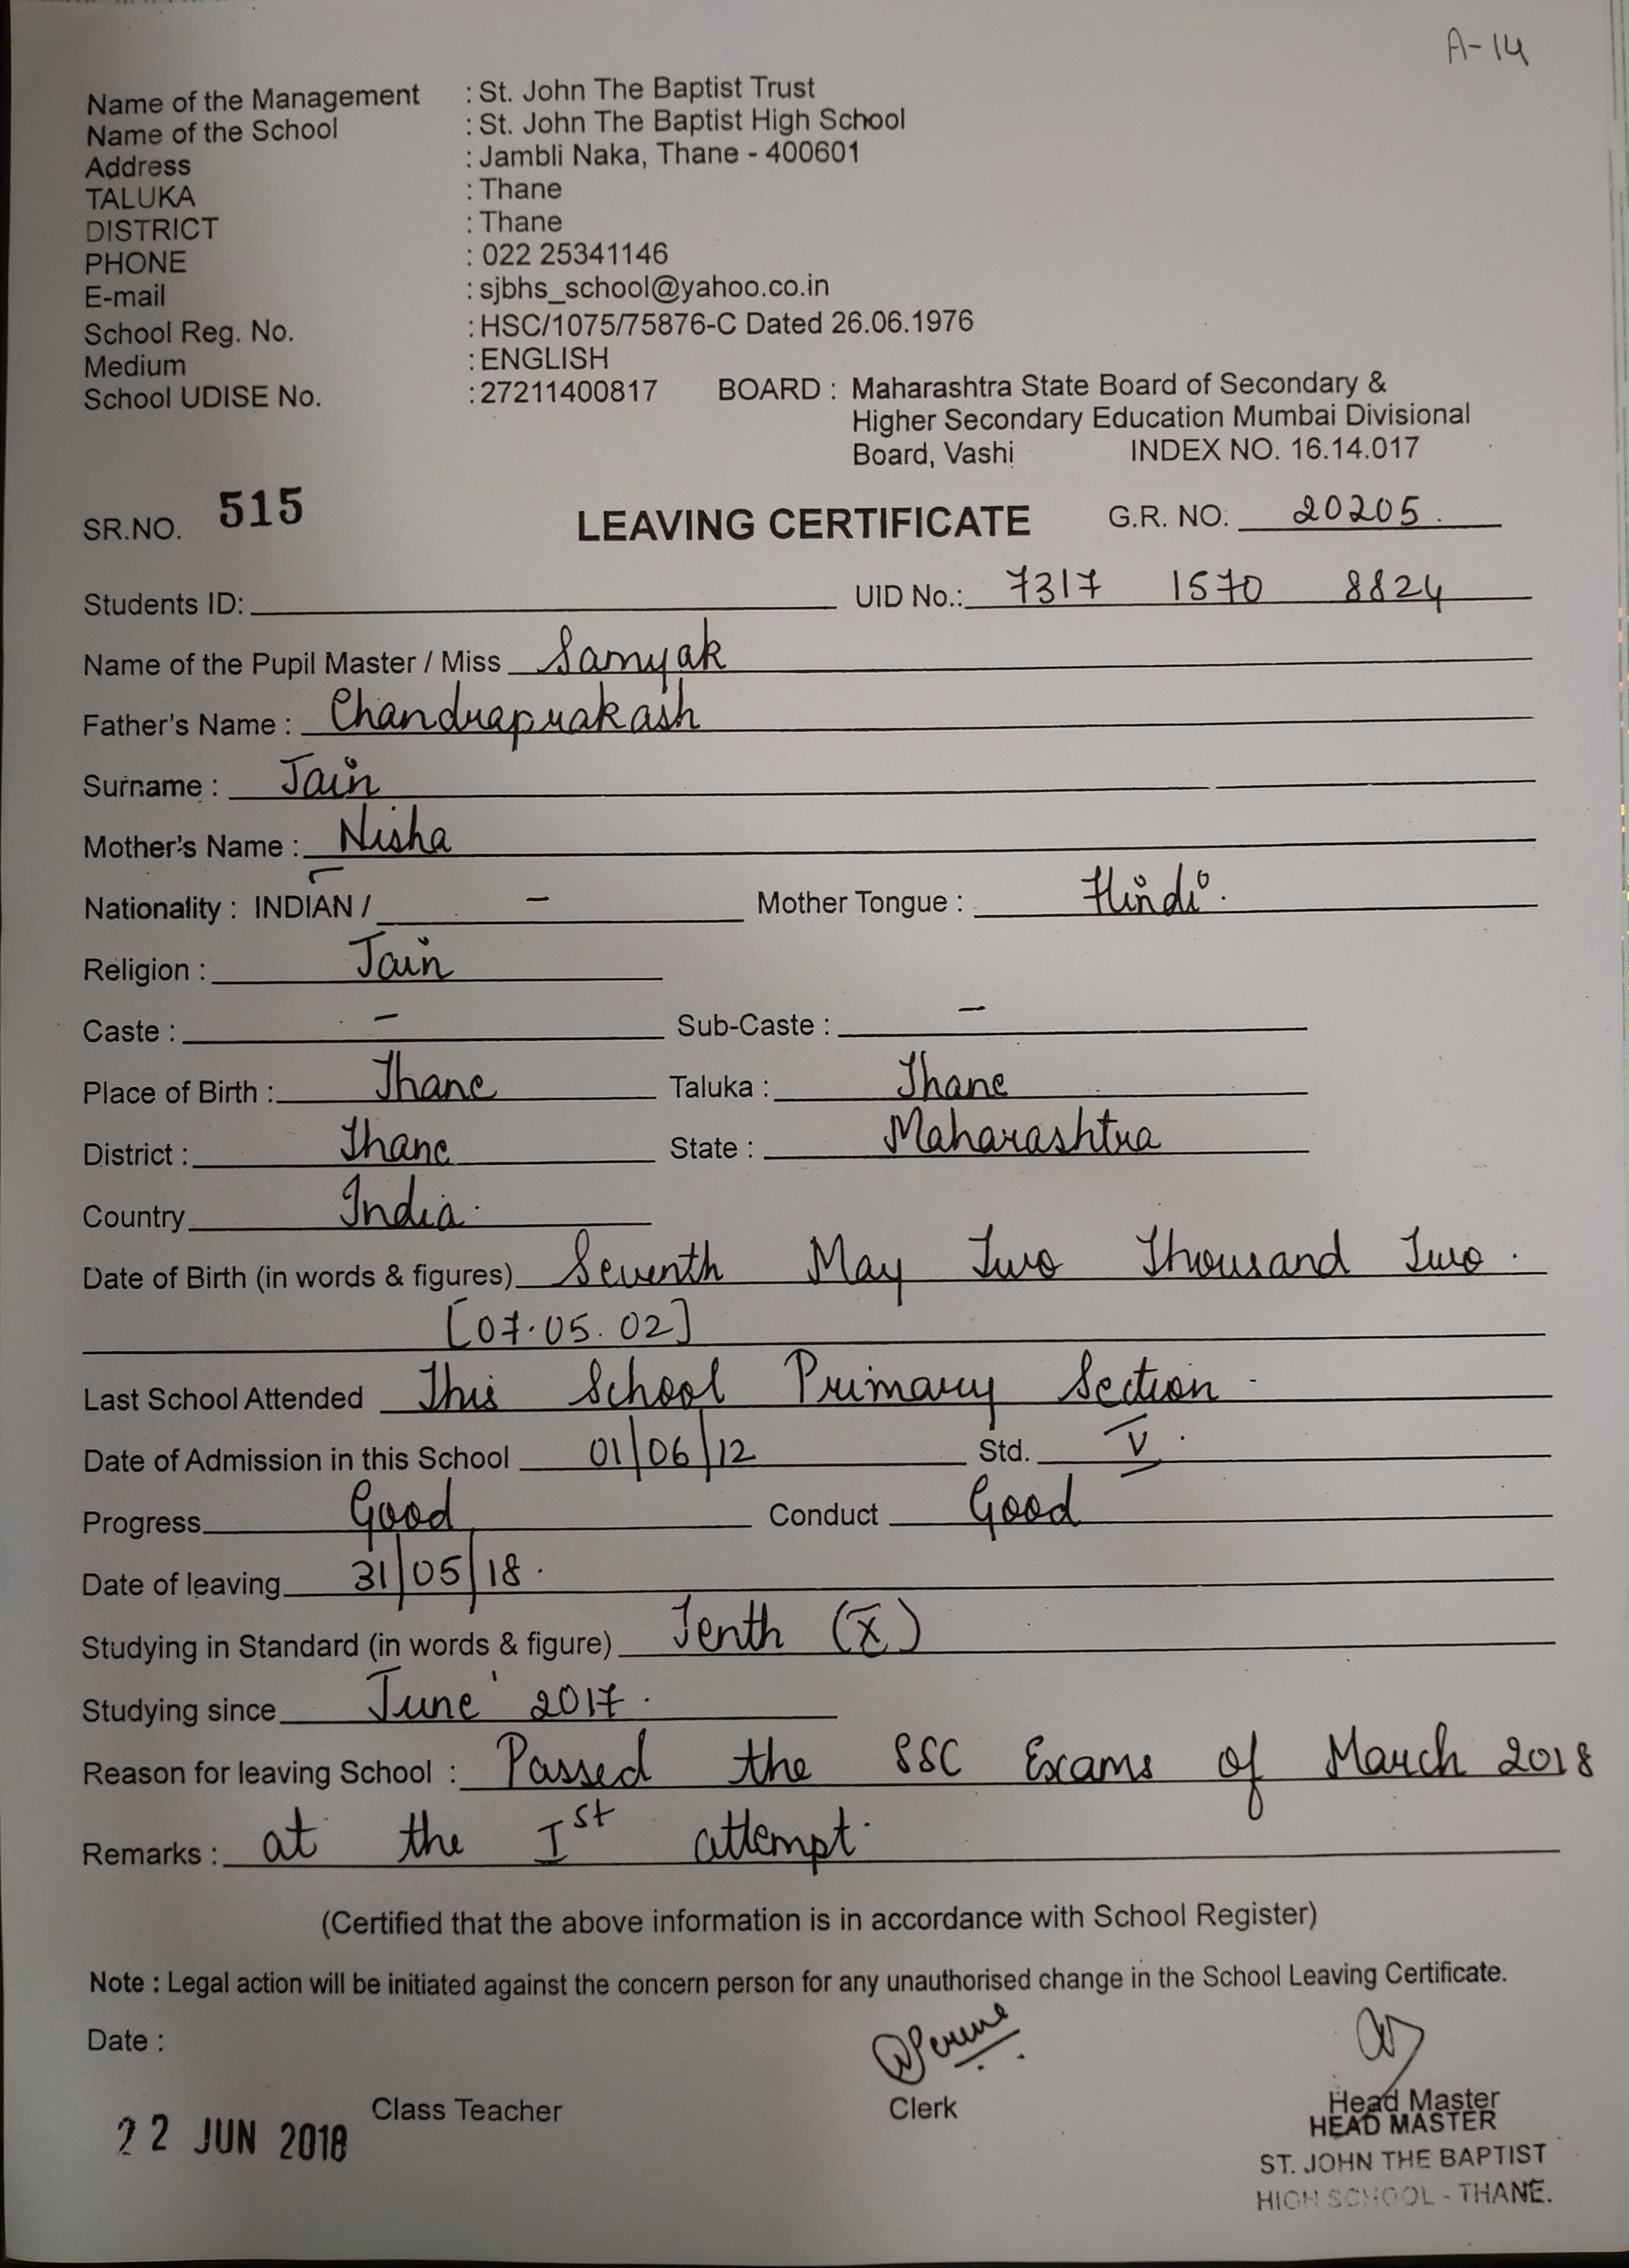 A-14
Name of the Management : St. John The Baptist Trust
Name of the School : St. John The Baptist High School
Address : Jambli Naka, Thane - 400601
TALUKA : Thane
DISTRICT : Thane
PHONE : 022 25341146
E-mail : sjbhs_school@yahoo.co.in
School Reg. No. : HSC/1075/75876-C Dated 26.06.1976
Medium : ENGLISH
School UDISE No. : 27211400817 BOARD : Maharashtra State Board of Secondary &
Higher Secondary Education Mumbai Divisional
Board, Vashi INDEX NO. 16.14.017
SR.NO. 515 LEAVING CERTIFICATE G.R. NO. 20205.
Students ID: UID No.: 7317 1570 8824
Name of the Pupil Master / Miss Samyak
Father's Name : Chandraprakash
Surname : Jain
Mother's Name : Nisha
Nationality : INDIAN / - Mother Tongue : Hindi.
Religion : Jain
Caste : - Sub-Caste : -
Place of Birth : Thane Taluka : Thane
District : Thane State : Maharashtra
Country India.
Date of Birth (in words & figures) Seventh May Two Thousand Two.
[07.05.02]
Last School Attended This School Primary Section.
Date of Admission in this School 01/06/12 Std. V.
Progress Good Conduct Good
Date of leaving 31/05/18.
Studying in Standard (in words & figure) Tenth (X)
Studying since June' 2017.
Reason for leaving School : Passed the SSC Exams of March 2018
Remarks : at the Ist attempt.
(Certified that the above information is in accordance with School Register)
Note : Legal action will be initiated against the concern person for any unauthorised change in the School Leaving Certificate.
Date :
Class Teacher Clerk Head Master
22 JUN 2018 HEAD MASTER
ST. JOHN THE BAPTIST
HIGH SCHOOL - THANE.